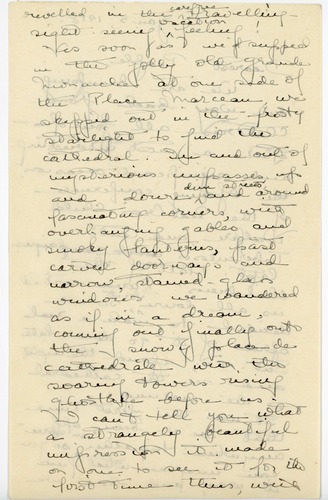 revelled in the carefree travelling
sight seeing vacation feeling!
Yes soon as we'd supped
in the jolly old grande
Monarche at one side of
the Place Marceau, we
skipped out in the frosty
starlight to find the
cathedral. In and out of
mysterious impasses, up
and down dim streets and around
fascinating corners, with
overhanging gables and
smoky lanterns, past
carved doorways and
narrow, stained-glass
windows we wandered
as if in a dream,
coming out finally onto
the snowy place de
cathédrale with the
soaring towers rising
ghostlike before us.
I can't tell you what
a strangely beautiful
impression it made
on one to see it for the
first time thus, with